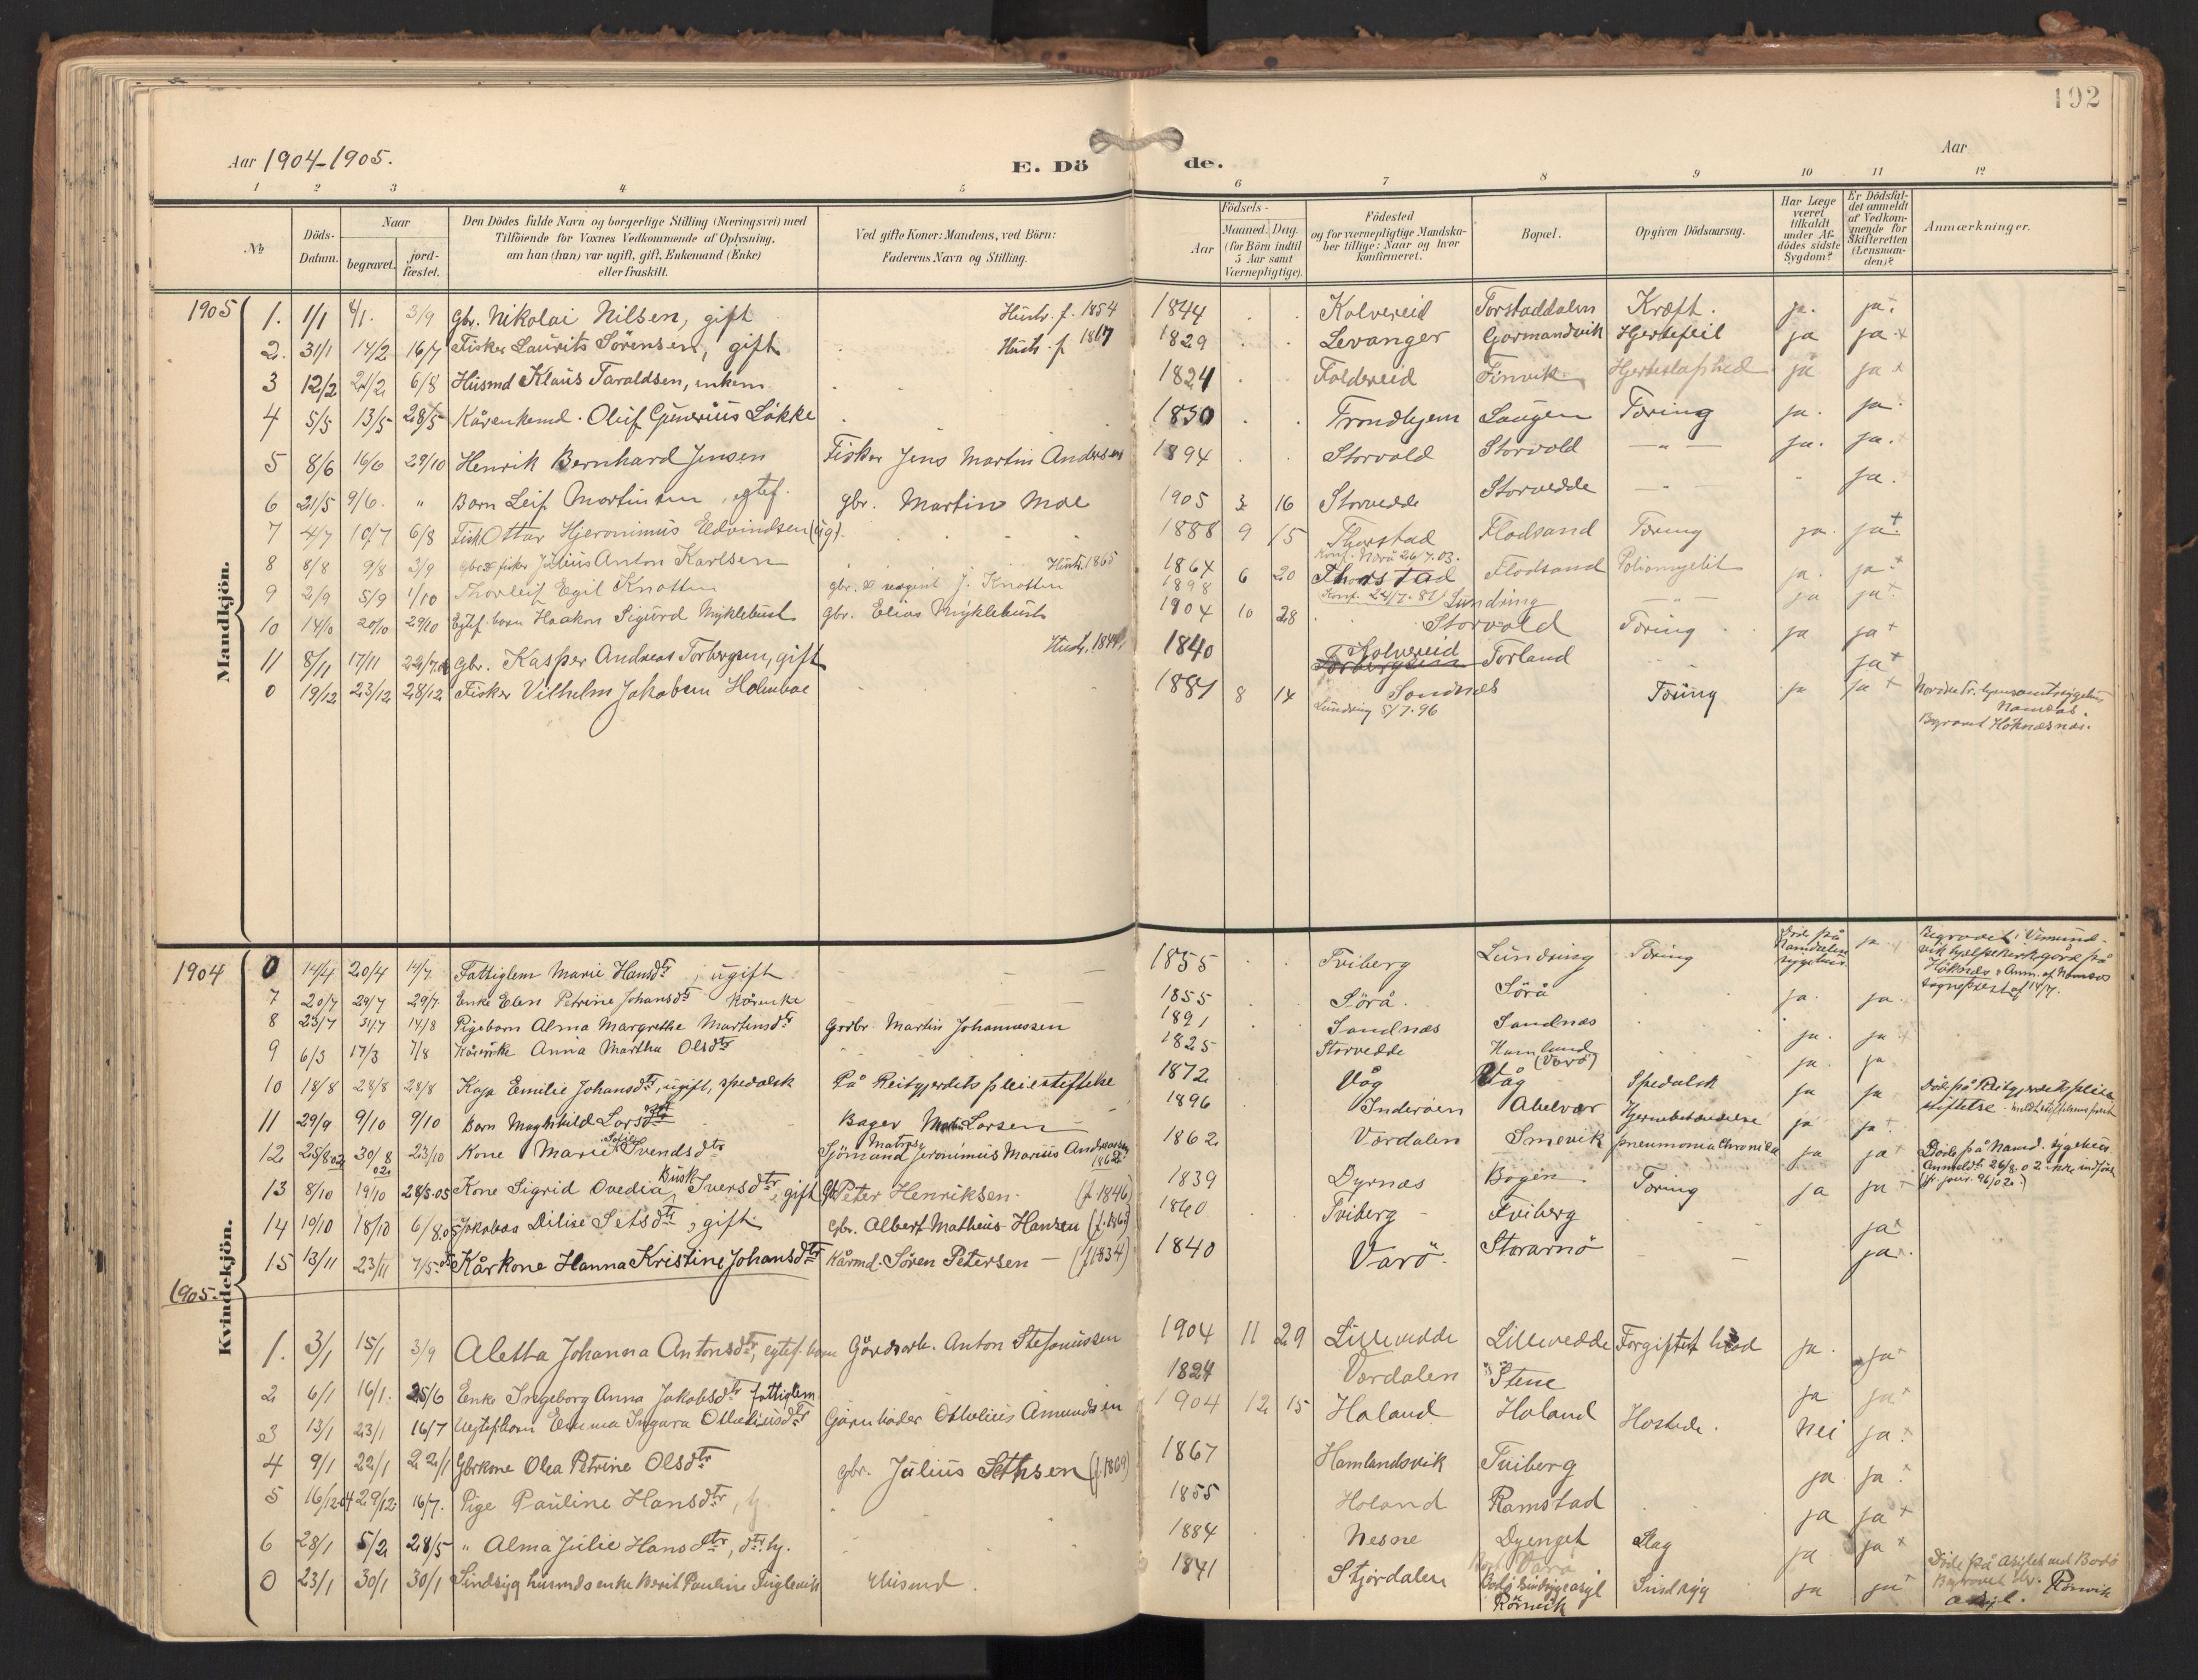 192
Aar 1904-1905.
E. Dö
de.
Aar
1 2 3 4 5 6 7 8 9 10 11 12
No.
Döds-Datum.
Naar
begravet.
jord-fæstet.
Den Dödes fulde Navn og borgerlige Stilling (Næringsvei) med
Tilföiende for Voxnes Vedkommende af Oplysning,
om han (hun) var ugift, gift, Enkemand (Enke)
eller fraskilt.
Ved gifte Koner: Mandens, ved Börn:
Faderens Navn og Stilling.
Födsels-
Aar
Maaned. Dag.
(for Börn indtil
5 Aar samt
Værnepligtige).
Födested
og for værnepligtige Mandska-
ber tillige: Naar og hvor
konfirmeret.
Bopæl.
Opgiven Dödsaarsag.
Har Læge
været
tilkaldt
under Af-
dödes sidste
Sygdom?
Er Dödsfal-
det anmeldt
af Vedkom-
mende for
Skifteretten
(Lensman-
den)?
Anmærkninger.
Mandkjön.
1905 1. 1/1 8/1. 3/9 Gbr. Nikolai Nilsen, gift Hustr. f. 1854 1844 Kolvereid Torstaddalen Kræft. ja. ja.
2. 31/1 14/2 16/7 Fisker Laurits Sörensen, gift Hustr. f 1817 1829 Levanger Gjormandvik Hjertefeil ja ja
3 12/2 24/2 6/8 Husmd Klaus Taraldsen, enkem. 1824 Foldereid Finvik Hjerteslaphed ja ja
4 5/5 13/5 28/5 Kårenkemd. Oluf Gunerius Lökke 1830 Trondhjem Laugen Tæring ja. ja.
5 8/6 16/6 29/10 Henrik Bernhard Jensen Fisker Jens Martin Andersen 1894 Storvold Storvold — " — ja. ja.
6 21/5 9/6. " Barn Leif Martinsen, egtef. gbr. Martin Moe 1905 3 16 Storvedde Storvedde — " — ja.
7 4/7 10/7 6/8 Fisk. Ottar Hjeronimus Edvindsen (ug). 1888 9 15 Thorstad Flodsand Tæring ja. ja
Konf. Nærö 26/7.03.
8 8/8 9/8 3/9 gbr & fisker Julius Anton Karlsen Hustr. 1865 1864 6 20 Thorstad Flodsand Poliomyelit ja. ja
Konf. 24/7. 81
9 2/9 5/9 1/10 Thorleif Egil Knotten gbr. J. Knotten 1898 Lundring — " — ja ja
10 14/10 20/10 29/10 Egtef. barn Haakon Sigurd Myklebust gbr. Elias Myklebust 1904 10 28 Storvold Tæring ja ja
11 8/11 17/11 Gbr. Kasper Andreas Torbergsen, gift Hustr. 1844 1840 Kolvereid Torland ja
0 19/12 23/12 28/12 Fisker Vilhelm Jakobsen Holmboe 1881 8 14 Sandnæs Tæring ja ja
Lundring 5/7.96
Namsos.
Begravet Höknæsnæs.
Kvindekjön.
1904 0 14/4 20/4 14/7 Fattiglem Marie Hansdtr, ugift — — 1855 Tviberg Lundring Tæring Död på Namdalens sygehus ja
Begravet i Vemund-
vik hjelpekirkegård på
Höknæs. Anm. af Namsos
sogneprest 14/7.
7 20/7 29/7 29/7 Enke Elen Petrine Johansdtr Kårenke — — 1855 Sörå. Sörå ja. ja
8 23/7 31/7 14/8 Pigebarn Alma Margrethe Martinsdtr Grdbr. Martin Johannessen 1891 Sandnæs Sandnæs ja. ja
9 6/3 17/3 7/8 Kårenke Anna Martha Olsdtr 1825 Storvedde Hamland (Varö) ja. ja
10 18/8 28/8 28/8 Kaja Emilie Johansdtr, ugift, spedalsk På Reitgjerdets pleiestiftelse 1872 Våg Våg Spedalsk ja ja Död på Reitgjerdets pleie-
stiftelse.
11 29/9 9/10 9/10 Barn Maghild Larsdtr Bager Larsen 1896 Inderöen Abelvær Hjernebetændelse ja ja
12 25/8 02 30/8 02 23/10 Kone Marie Sofie Svendsdtr Sjömand Matros Jeronimus Marius Andreassen 1862 1862 Værdalen Smevik pneumonia chronica ja ja Döde på Namd. sygehus
Anmeldt 26/8.02
13 8/10 19/10 28/5.05 Kone Sigrid Ovedia Busk Iversdtr, gift Gbr Peter Henriksen. (f. 1846) 1839 Dyrnæs Bogen Tæring ja ja
14 10/10 18/10 6/8.05 Jakobaa Dilise Setsdtr, gift Gbr. Albert Matheus Hansen 1860 Tviberg Tviberg ja
15 13/11 23/11 7/5.05 Kårkone Hanna Kristine Johansdtr Kårmd. Sören Petersen — (f 1834) 1840 Varö. Storarnö — ja
1905.
1. 3/1 15/1 3/9 Aletha Johanna Antonsdtr, egtef. barn Gårdsarb. Anton Stefanussen 1904 11 29 Lillevedde Lillevedde Forgiftet blod ja. ja
2 6/1 16/1. 25/6 Enke Ingeborg Anna Jakobsdtr fattiglem 1824 Værdalen Stene ja ja
3 13/1 23/1 16/7 Uegtef. barn Emma Ingvara Otheliusdtr Othelius Amundsen 1904 12 15 Haland Haland Hoste. nei ja
4 9/1 22/1 22/1 Gbrkone Olea Petrine Olsdtr gbr. Julius Sethsen (f. 1869) 1867 Hamlandsvik Tviberg ja ja
5 16/12.04 29/12. 16/7. Pige Pauline Hansdtr, 1855 Haland Ramstad ja ja
6 28/1 5/2 28/5 " Alma Julie Hansdtr, 1884 Nesne Dyenget Slag ja ja
0 23/1 30/1 30/1 Sindsyg husmdsenke Berit Pauline Fuglevik Husmd. 1841 Stjördalen Bodö Sindsygeasyl Rönvik Sindssyg ja ja Döde på Asylet ved Bodö
Begravet Rönvik
asyl.